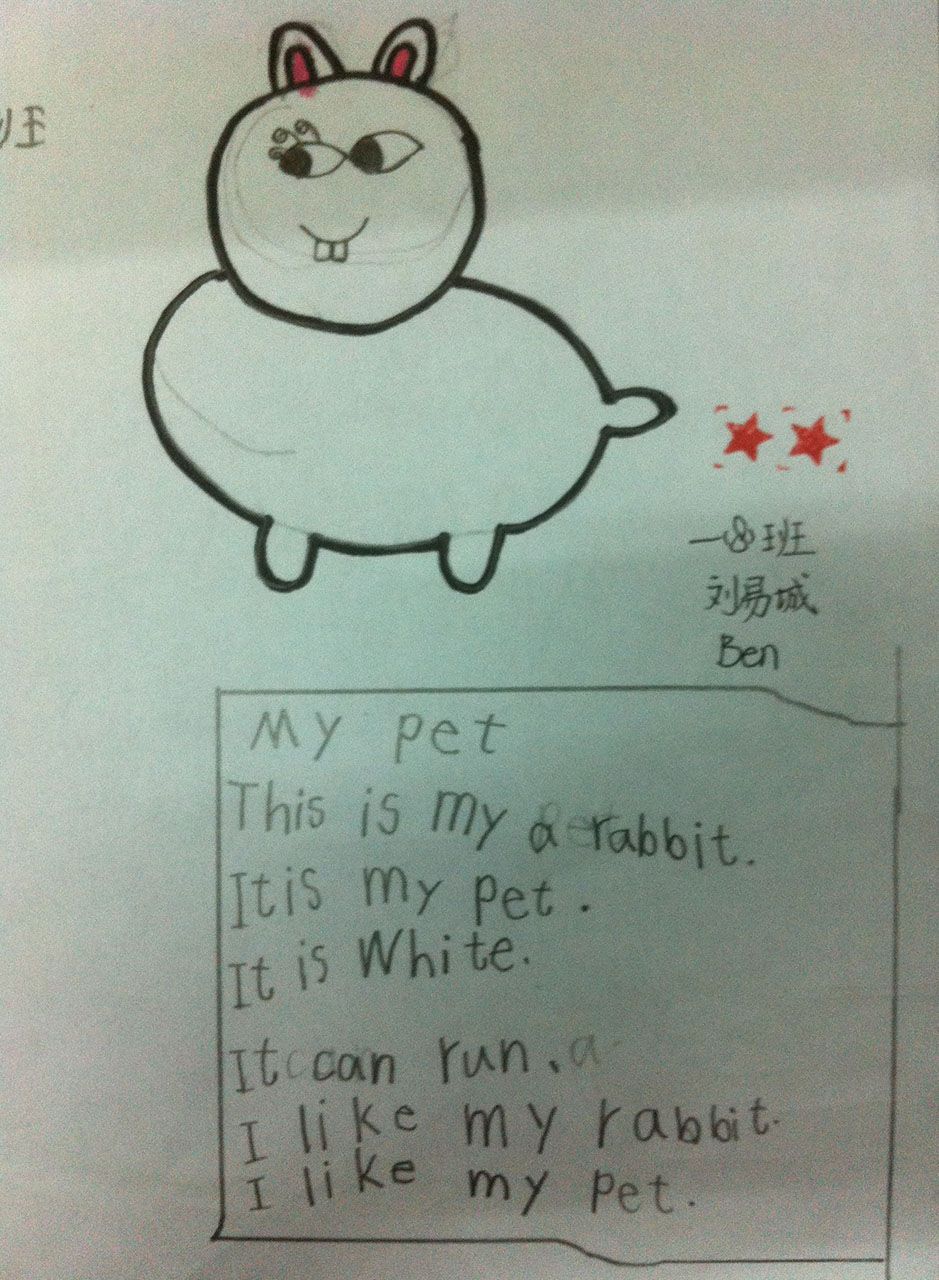 班
一⑧班
刘易城
Ben
My pet
This is my a rabbit.
It is my pet.
It is White.
It can run.
I like my rabbit.
I like my pet.